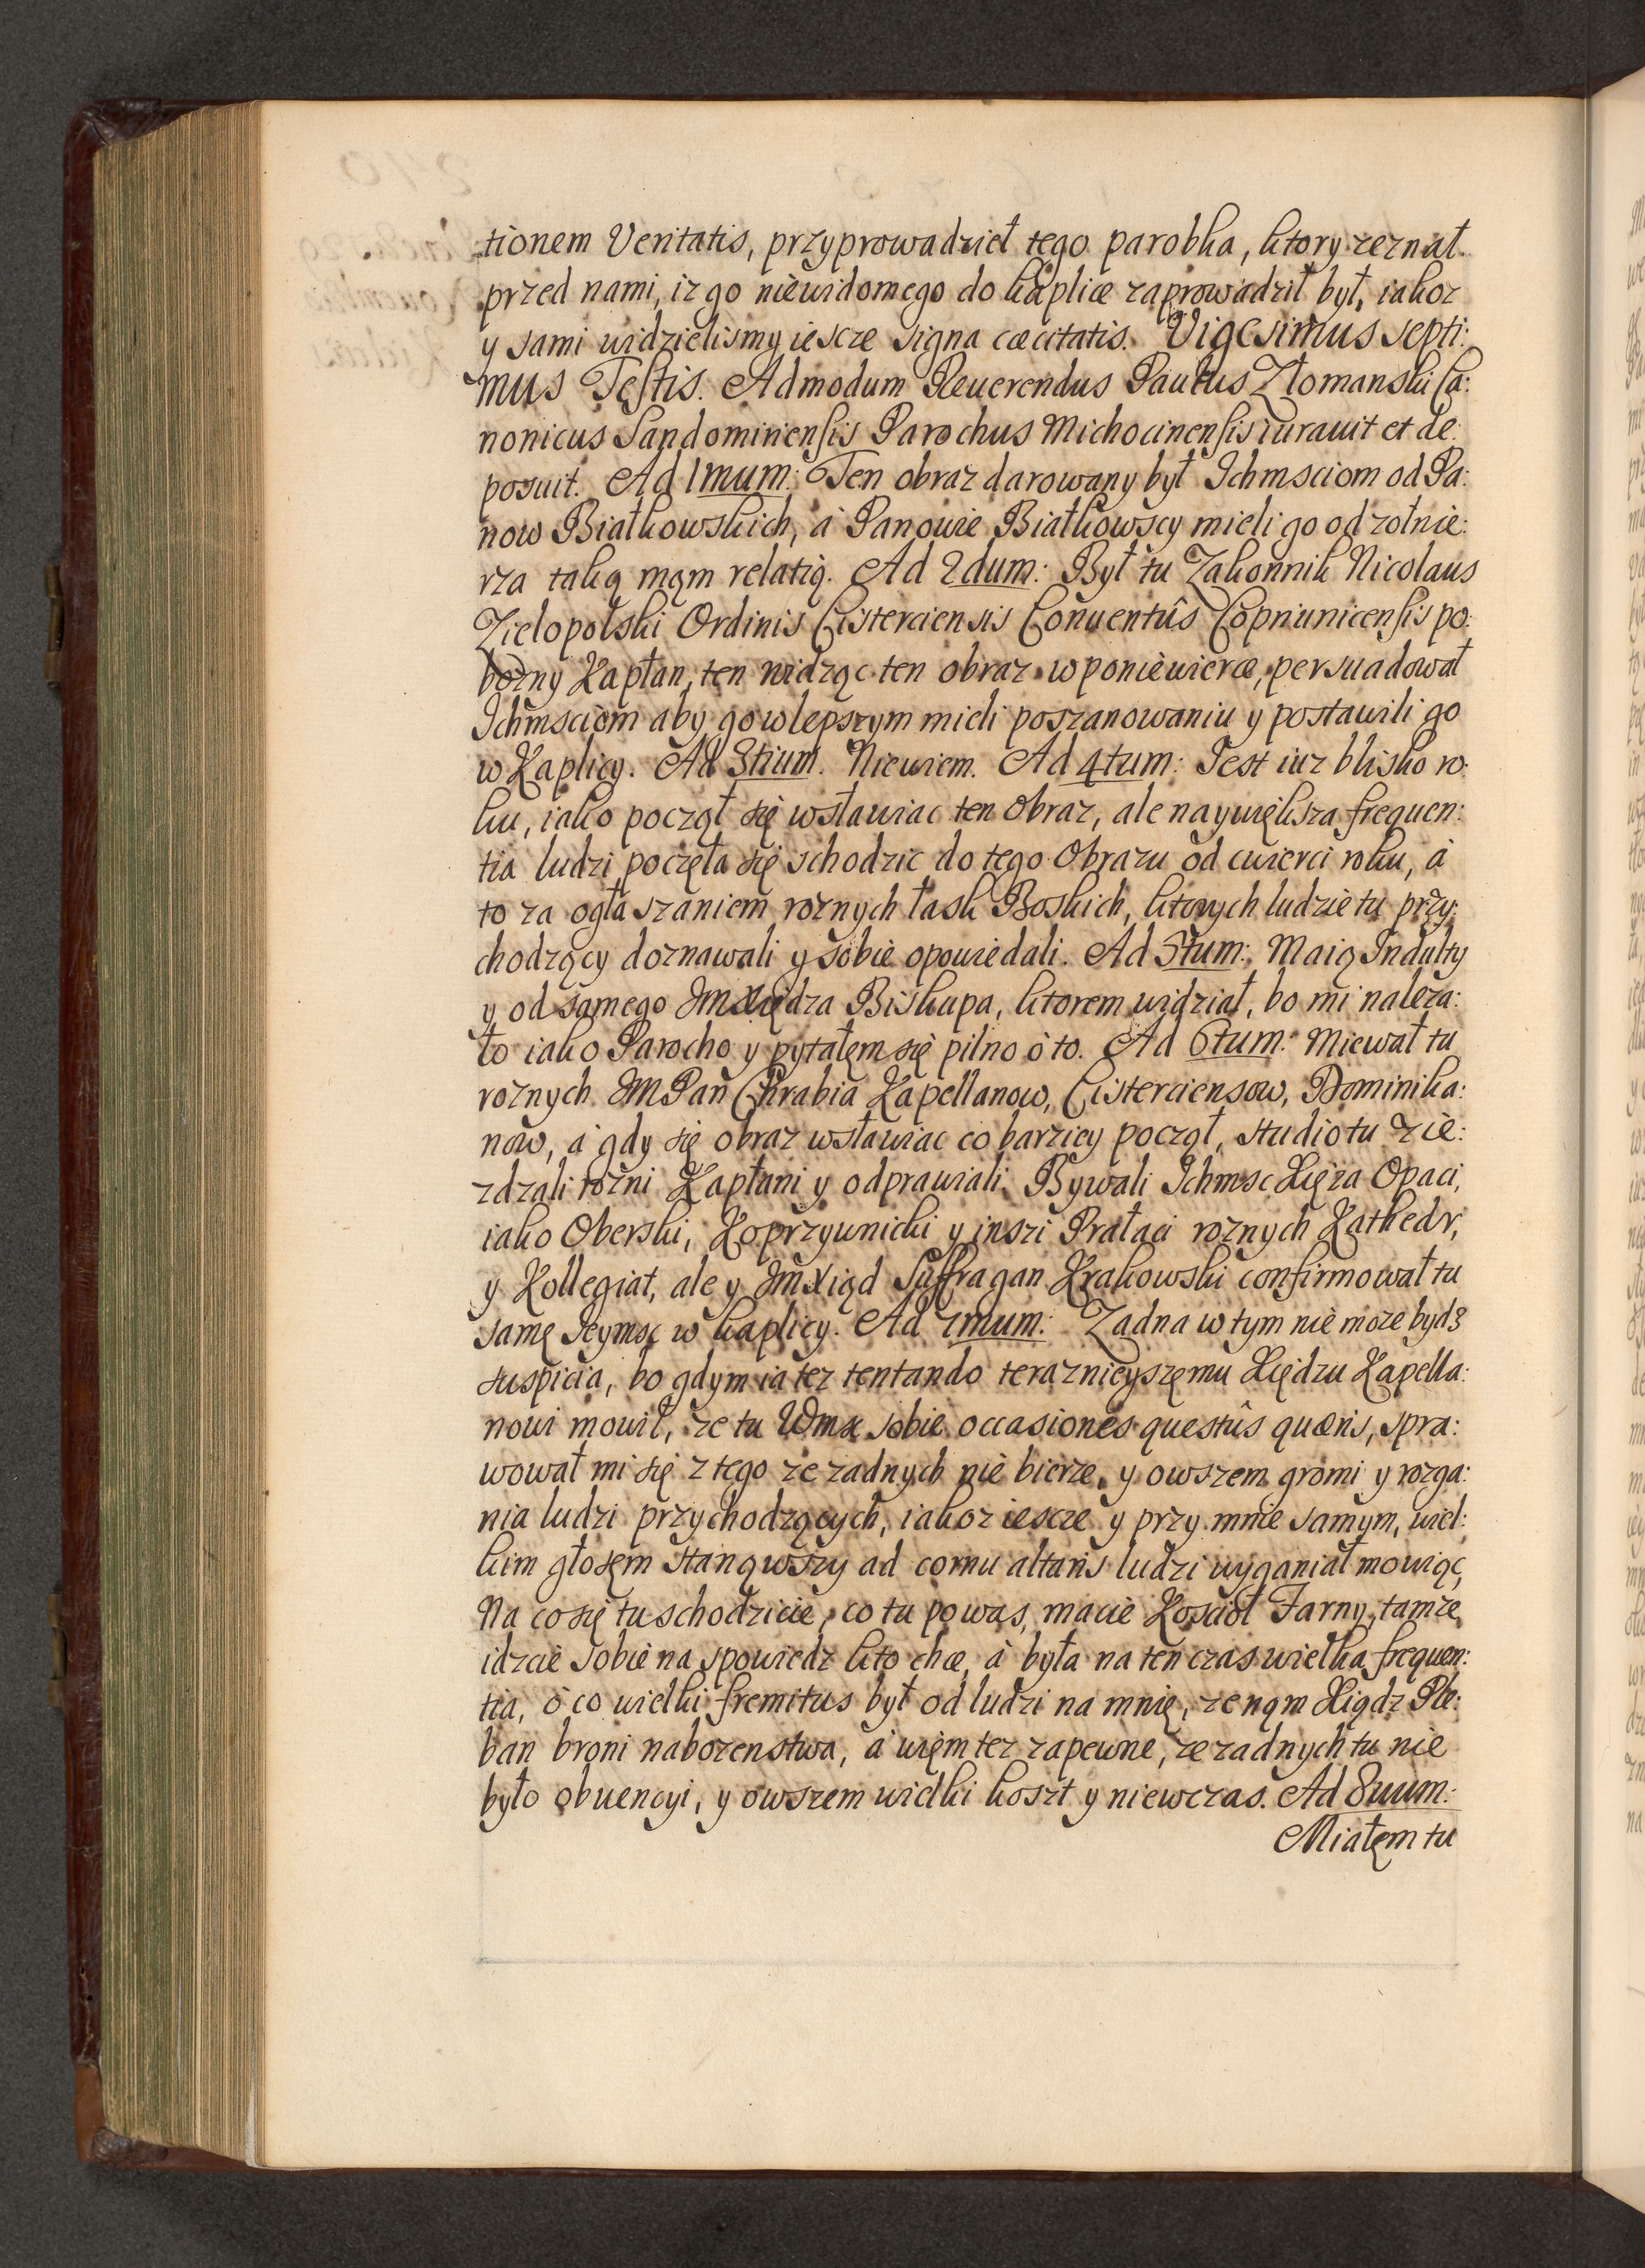 tionem Veritatis, przyprowadzieł tego parobka, ktory zeznał
przed nami, iz go niewidomego do kaplice zaprowadził był, iakoz
y sami widzielismy iescze signa cæcitatis. Vigesimus septi:
mus Testis. Admodum Reuerendus Paulus Złomanski Ca:
nonicus Sandomiriensis Parochus Michocinensis iurauit et de:
posuit. Ad 1mum: Ten obraz darowany był Ichmsciom od Pa:
now Białkowskich, á Panowie Białkowscy mieli go od zołnie:
rza taką mąm relatią. Ad 2dum: Był tu Zakonnik Nicolaus
Zielopolski Ordinis Cisterciensis Conuentûs Copriunicensis po:
bozny Kapłan, ten widząc ten obraz w poniewierce, persuadował
Ichmsciom aby go w lepszym mieli poszanowaniu y postawili go
w Kaplicy. Ad 3tium. Niewiem. Ad 4tum: Jest iuz blisko ro:
ku, iako począł się wsławiac ten obraz, ale naywiększa frequen:
tia ludzi poczęła się schodzic do tego Obrazu od cwierci roku, á
to za ogłaszaniem roznych łask Boskich, ktorych ludzie tu przy:
chodzący doznawali y sobie opowiedali. Ad 5tum: Maią Indulty
y od samego JmXiędza Biskupa, ktorem widział, bo mi naleza:
ło iako Parocho y pytałęm się pilno ó to. Ad 6tum: Miewał tu
roznych JmPan Chrabia Kapellanow, Cisterciensow, Dominika:
now, á gdy się obraz wsławiac co barziey począł, studio tu zie:
zdzali rozni Kapłani y odprawiali. Bywali Ichmsc Xięza Opaci,
iako Oberski, Koprzywnicki y inszi Prałaci roznych Kathedr,
y Kollegiat, ale y JmXiąd Suffragan Krakowski confirmował tu
samę Jeymsc w kaplicy. Ad 7mum: Zadna w tym nie moze bydz
suspicia, bo gdym ia tez tentando teraznieyszęmu Xiędzu Kapella:
nowi mowił, ze tu Wmsc sobie occasiones questûs quæris, spra:
wował mi się z tego ze zadnych nie bierze, y owszem gromi y rozga:
nia ludzi przychodzących, iakoz iescze y przy mnie samym, wiel:
kim głosem stanąwszy ad cornu altaris ludzi wyganiał mowiąc,
Na co się tu schodzicie, co tu po was, macie Kosciół Farny, tamze
idzcie sobie na spowiedz kto chce, á była na ten czas wielka frequen:
tia, ó co wielki fremitus był od ludzi na mnię, ze nąm Xiądz Ple:
ban broni nabozenstwa, á więm tez zapewne, ze zadnych tu nie
było obuencyi, y owszem wielki koszt y niewczas. Ad 8uum:
Miałęm tu